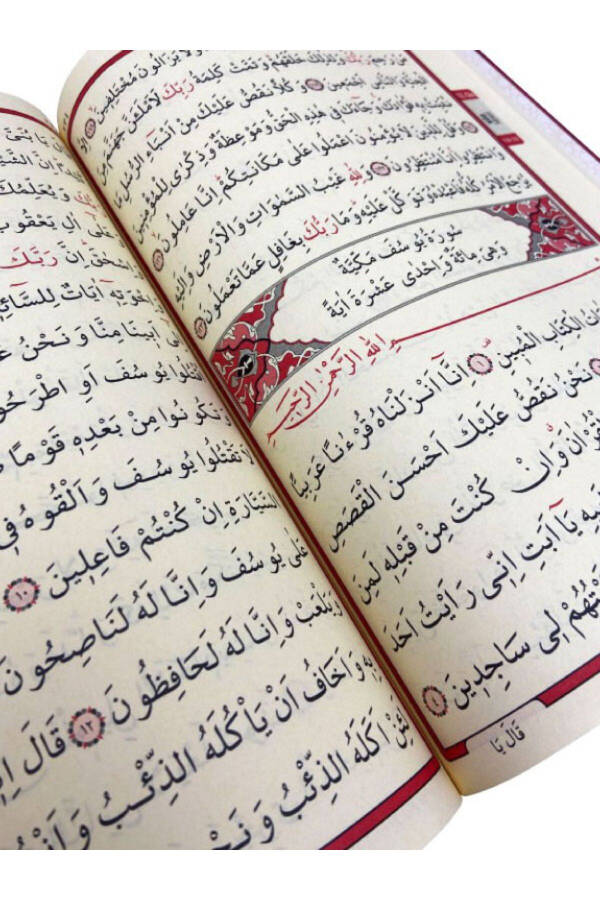 وَلَا يَزَالُونَ مُخْتَلِفِينَ
مَنْ رَحِمَ رَبُّكَ وَلِذٰلِكَ خَلَقَهُمْ وَتَمَّتْ كَلِمَةُ رَبِّكَ لَاَمْلَـَٔنَّ جَهَنَّمَ مِنَ
الْجِنَّةِ وَالنَّاسِ اَجْمَعِينَ وَكُلًّا نَقُصُّ عَلَيْكَ مِنْ اَنْبَاءِ الرُّسُلِ مَا
نُثَبِّتُ بِهِ فُؤَادَكَ وَجَاءَكَ فِي هٰذِهِ الْحَقُّ وَمَوْعِظَةٌ وَذِكْرٰى لِلْمُؤْمِنِينَ
وَقُلْ لِلَّذِينَ لَا يُؤْمِنُونَ اعْمَلُوا عَلٰى مَكَانَتِكُمْ اِنَّا عَامِلُونَ
وَانْتَظِرُوا اِنَّا مُنْتَظِرُونَ وَلِلّٰهِ غَيْبُ السَّمٰوَاتِ وَالْاَرْضِ وَاِلَيْهِ
يُرْجَعُ الْاَمْرُ كُلُّهُ فَاعْبُدْهُ وَتَوَكَّلْ عَلَيْهِ وَمَا رَبُّكَ بِغَافِلٍ عَمَّا تَعْمَلُونَ
سُورَةُ يُوسُفَ مَكِّيَّةٌ
وَهِيَ مِائَةٌ وَاِحْدٰى عَشْرَةَ اٰيَةً
اللّٰهِ الرَّحْمٰنِ الرَّحِيمِ
الْكِتَابِ الْمُبِينِ ١ اِنَّا اَنْزَلْنَاهُ قُرْءٰنًا عَرَبِيًّا
نَحْنُ نَقُصُّ عَلَيْكَ اَحْسَنَ الْقَصَصِ
وَاِنْ كُنْتَ مِنْ قَبْلِهِ لَمِنَ
يَا اَبَتِ اِنِّي رَاَيْتُ اَحَدَ
لِي سَاجِدِينَ ٤
قَالَ يَا
رَبُّكَ وَيُعَلِّمُكَ
عَلٰى اٰلِ يَعْقُوبَ
اِنَّ رَبَّكَ
وَاِخْوَتِهِ اٰيَاتٌ لِلسَّائِلِينَ
اَبِينَا مِنَّا وَنَحْنُ
اُقْتُلُوا يُوسُفَ اَوِ اطْرَحُوهُ
وَتَكُونُوا مِنْ بَعْدِهِ قَوْمًا
لَا تَقْتُلُوا يُوسُفَ وَاَلْقُوهُ فِي
السَّيَّارَةِ اِنْ كُنْتُمْ فَاعِلِينَ ١٠
عَلٰى يُوسُفَ وَاِنَّا لَهُ لَنَاصِحُونَ
وَيَلْعَبْ وَاِنَّا لَهُ لَحَافِظُونَ ١٢ قَالَ
بِهِ وَاَخَافُ اَنْ يَأْكُلَهُ الذِّئْبُ وَاَنْتُمْ
لَئِنْ اَكَلَهُ الذِّئْبُ وَنَحْنُ